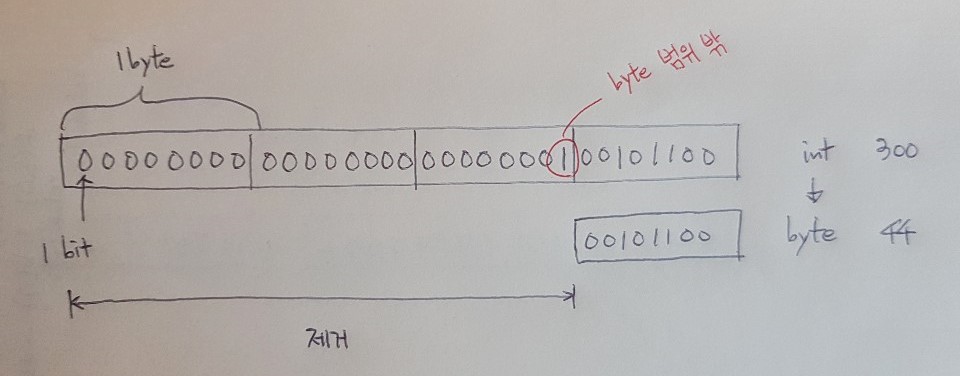 1byte
byte 범위 밖
00000000 00000000 00000001 00101100 int 300
00101100 byte 44
1 bit
제거